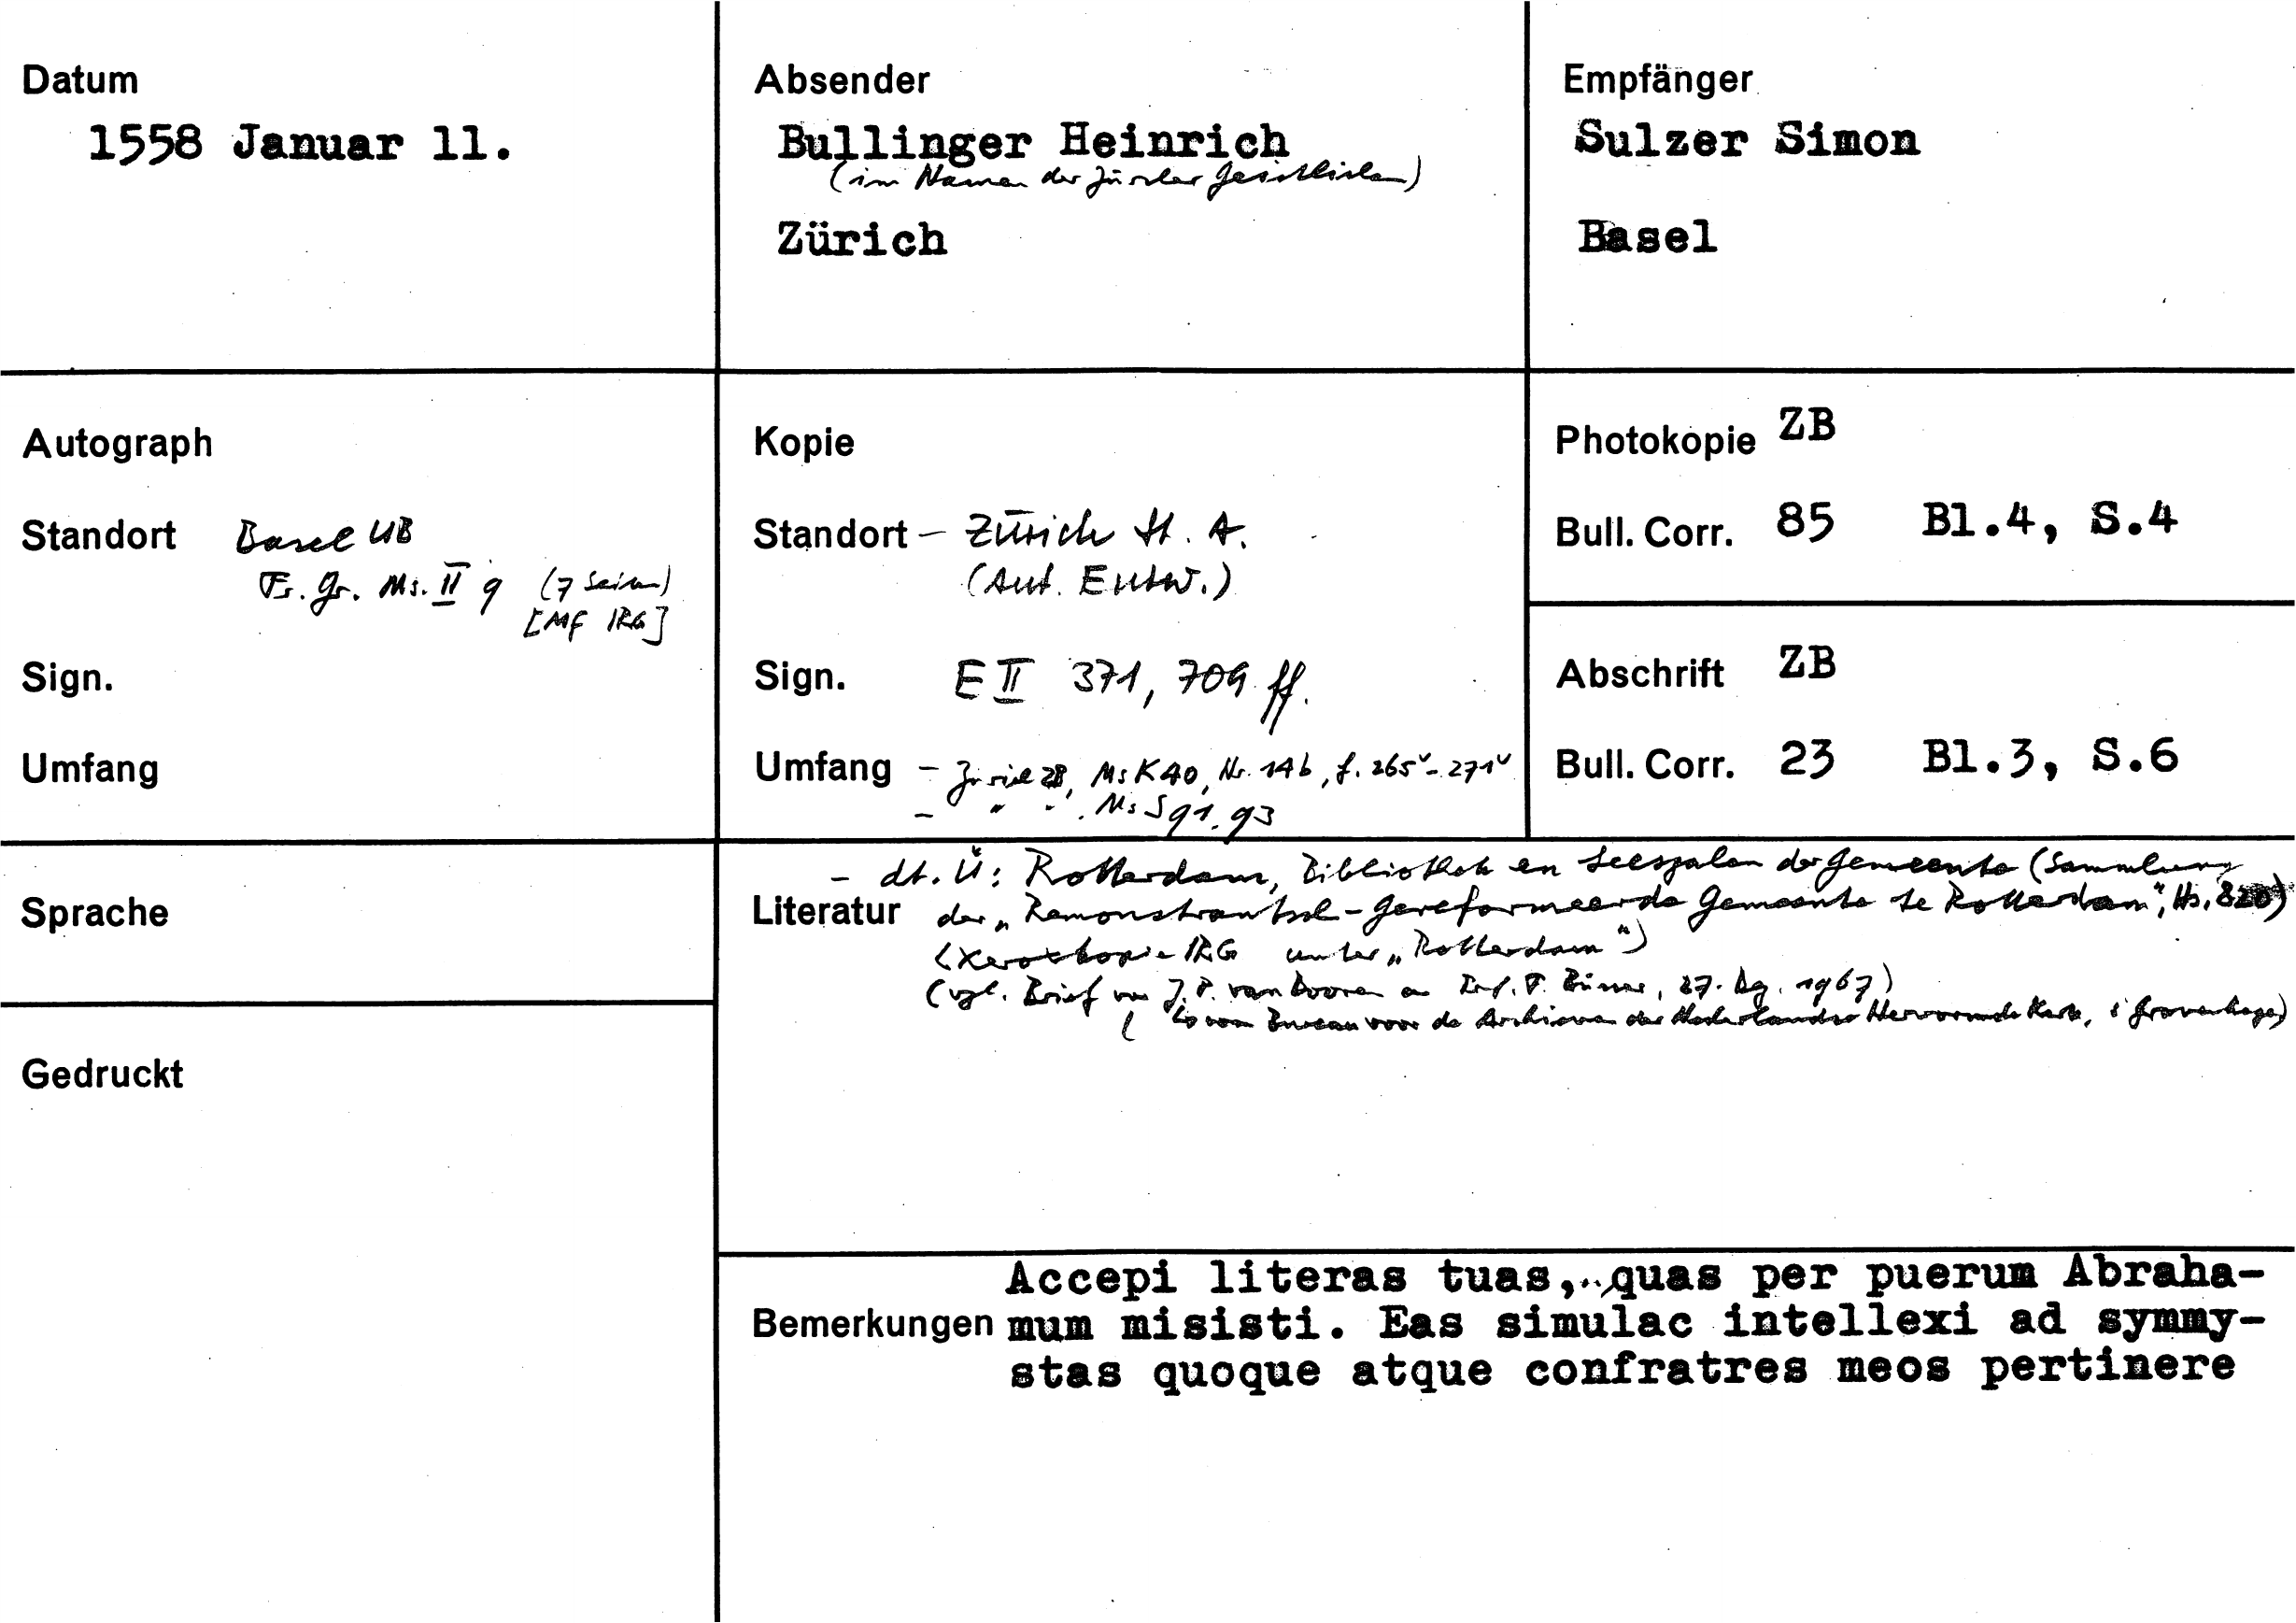 Datum
1558 Januar 11.
Absender
Bullinger Heinrich
(im Namen der Zürcher Geistlichen)
Zürich
Empfänger
Sulzer Simon
Basel
Autograph
Standort Basel UB
Fr. Gr. Ms. II 9 (7 Seiten)
[MF IRG]
Sign.
Umfang
Kopie
Standort – Zürich St. A.
(Aut. Entw.)
Sign. E II 371, 709 ff.
Umfang – Zürich ZB, Ms K 40, Nr. 146, f. 265v - 271v
– " " , Ms S 91. 93
Photokopie ZB
Bull. Corr. 85 Bl.4, S.4
Abschrift ZB
Bull. Corr. 23 Bl.3, S.6
Sprache
Gedruckt
– dt. Ü: Rotterdam, Bibliothek en Leeszalen der Gemeente (Sammlung
Literatur der „Remonstrantsch-Gereformeerde Gemeente te Rotterdam", Hs. 820)
(Xerokopie IRG unter „Rotterdam")
(vgl. Brief von J. P. van Dooren an Prof. F. Büsser, 27. 1967)
( vom Bureau voor de Archieven der Nederlandse Hervormde Kerk, s'Gravenhage)
Accepi literas tuas, quas per puerum Abraha-
Bemerkungen mum misisti. Eas simulac intellexi ad symmy-
stas quoque atque confratres meos pertinere